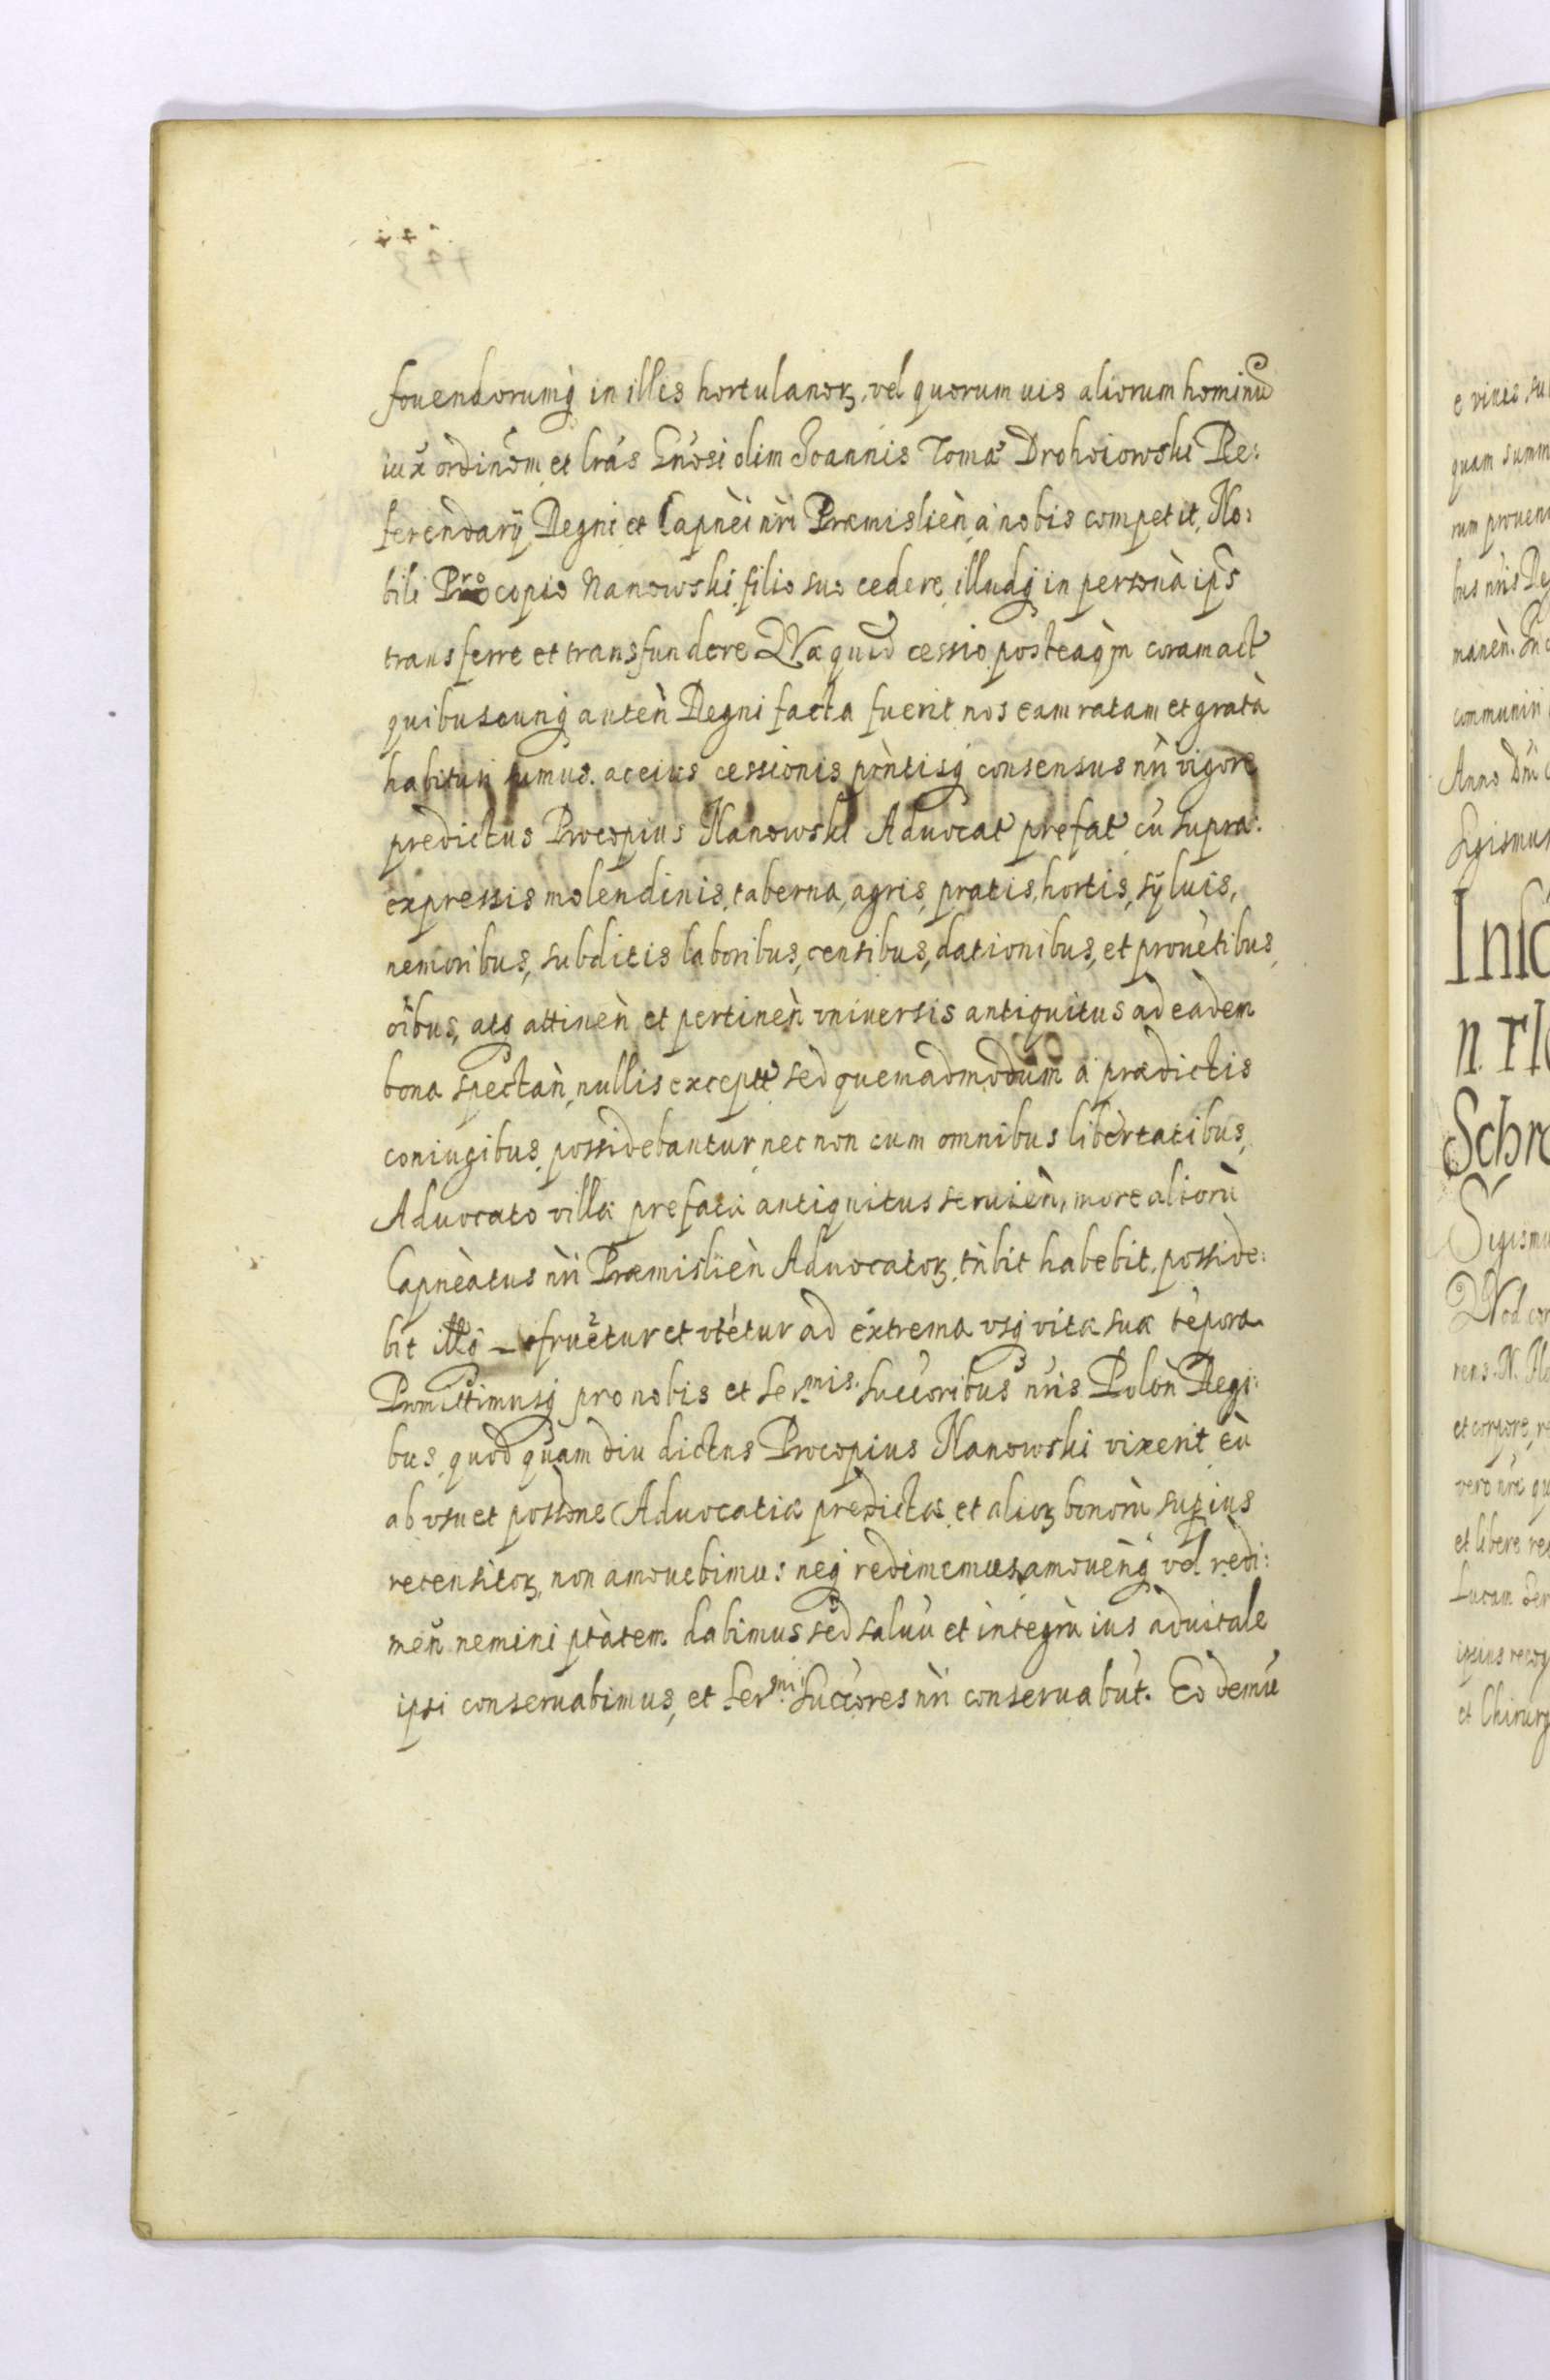 fouendorumq̃ in illis hortulanoꝝ, vel quorumuis aliorum hominũ
iux̃ ordinõm et lrás Gñosi olim Joannis Tomæ Drohoiowski Re:
ferendarÿ Regni et Capnèi nrì Præmislieǹ à nobis competit, No:
bili Procopio Nanowski filio suo cedere illudq̃ in personà ips̃
transferre et transfundere QVæ quid̃ cessio posteaq̃m coram act̃
quibuscunq̃ auteǹ Regni facta fuerit nos eam ratam et gratà
habituri sumus. ac eius cessionis pǹtisq̃ consensus nrì vigore
predictus Procopius Nanowski Aduocat̃ prefat̃ cũ supra:
expressis molendinis, taberna, agris, pratis, hortis, sÿluis,
nemoribus, subditis laboribus, censibus, dationibus, et prouẽtibus,
oĩbus, atq̃ attineǹ et pertineǹ vniuersis antiquitus ad eadem
bona spectaǹ, nullis except̃ sed quemadmodum à prædictis
coniugibus possidebantur, nec non cum omnibus libertatibus,
Aduocato villæ prefatæ antiquitus seruieǹ, more aliorũ
Capneàtus nrì Præmislieǹ Aduocatoꝝ, tǹbit habebit, posside:
bit fruetur et vtétur ad extrema vsq̃ vitæ suæ tẽpora
Promittimusq̃ pro nobis et Ser.mis. Succ̃oribus nr̃is Poloǹ Regi:
bus, quod quam diu dictus Procopius Nanowski vixerit, eũ
ab vsu et possõne Aduocatiæ predictæ et alioꝝ bonorũ suꝑius
recensitoꝝ, non amouebimus: neq̃ redimemus, amoueǹq̃ vel redi:
meñ nemini ptàtem dabimus sed saluũ et integrũ ius aduitale
ipsi conseruabimus, et Ser.mi Succ̃ores nrì conseruabũt. Eo demũ